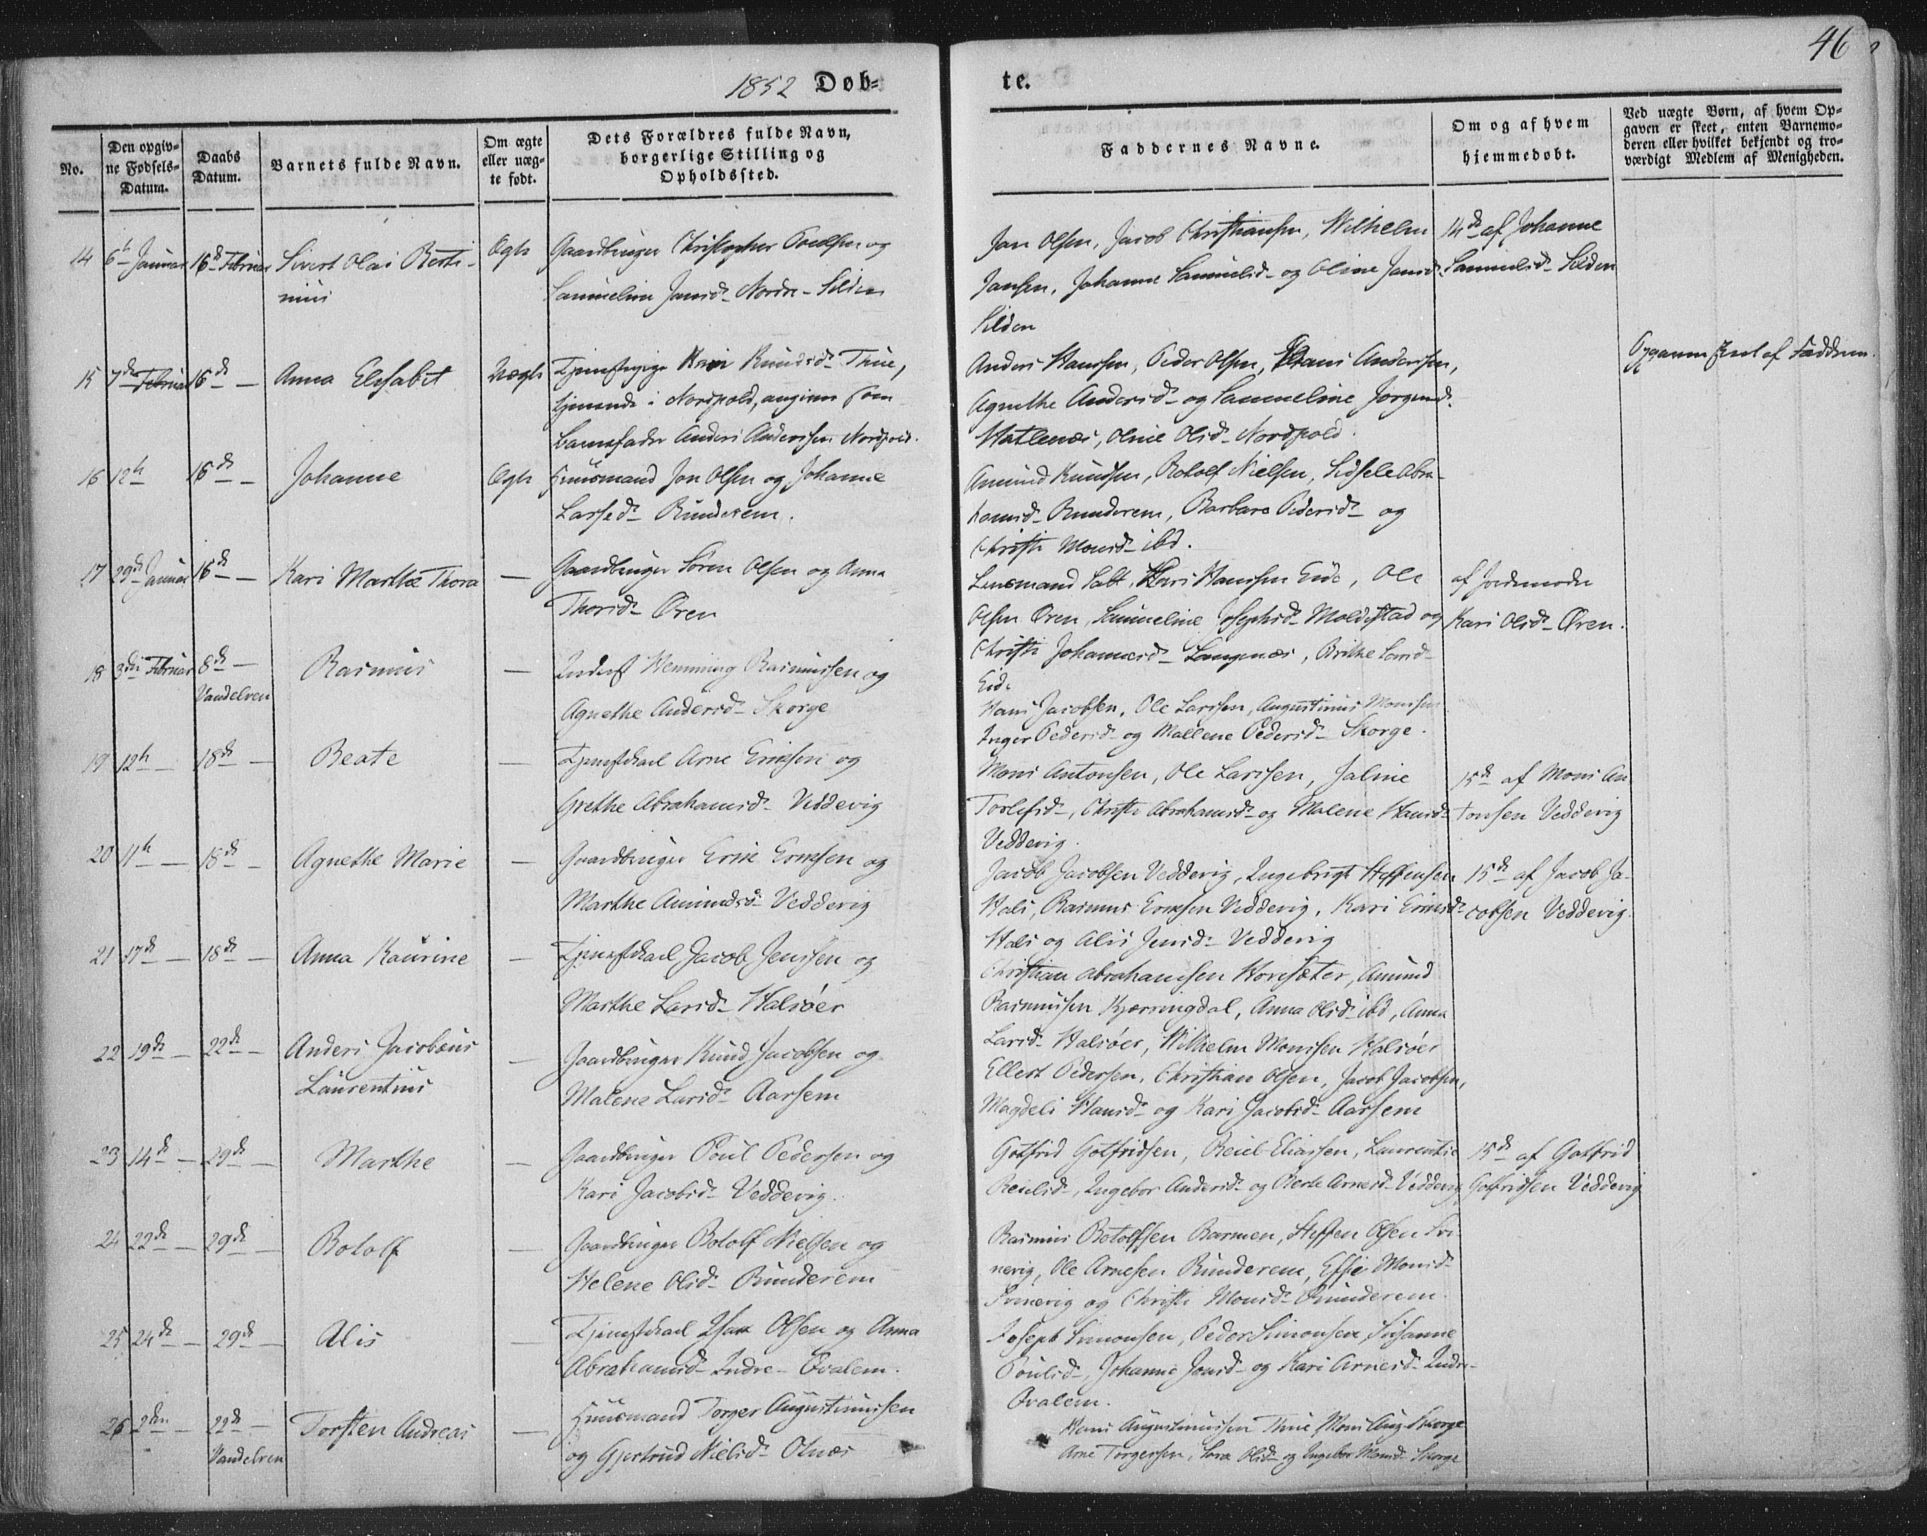 1852 Døb-
te.
46
No.
Den opgiv-
ne Fødsels-
Datum.
Daabs
Datum.
Barnets fulde Navn.
Om ægte
eller uæg-
te født.
Dets Forældres fulde Navn,
borgerlige Stilling og
Opholdssted.
Faddernes Navne.
Om og af hvem
hjemmedøbt.
Ved uægte Børn, af hvem Op-
gaven er skeet, enten Barnemo-
deren eller hvilket bekjendt og tro-
værdigt Medlem af Menigheden.
14 6te Januar 16de Februar Sivert Olai Berti- Ægte Gaardbruger Christopher Poulsen og
nius Sammeline Jansd. Nordre-Silden
Jan Olsen, Jacob Christiansen, Wilhelm 14de af Johanne
Jansen, Johanne Samuelsd. og Oline Jansd. Samuelsd. Silden
Silden
15 7de Februar 16de Anna Elisabet Uægte Tjenestepige Kari Knudsd. Thue,
tjenende i Nordpold, angiven som
Barnefader Anders Anderssen Nordpold.
Anders Hanssen, Peder Olsen, Hans Anderssen,
Agnethe Andersd. og Sammeline Jørgensd.
Hatlenæs, Oline Olsd. Nordpold.
af Fadderne.
16 12te 16de Johanne Ægte Huusmand Jon Olsen og Johanne
Larsd. Runderem.
Amund Knudsen, Botolf Nielsen, Sidsele Abra-
hamsd. Runderem, Barbara Pedersd. og
Christi Monsd. ibd.
17 29de Januar 16de Kari Marthe Thora — Gaardbruger Søren Olsen og Anna
Thorsd. Øren
Lensmand Hans Hanssen Eide, Ole af Jordemoder
Olsen Øren, Sammeline Josephsd. Moldestad og Kari Olsd. Øren.
Christi Johannesd. Langenæs, Brithe Larsd.
Eide
18 3die Februar 8de Rasmus — Inderst Hemming Rasmussen og
Vandelven
Agnethe Andersd. Skorge
Hans Jacobsen, Ole Larssen, Augustinus Monsen
Inger Pedersd. og Mallene Pedersd. Skorge.
19 12te 18de Beate — Tjenestekarl Arne Ericksen og
Grethe Abrahamsd. Veddevig
Mons Antonsen, Ole Larssen, Jaline 15de af Mons An
Torlefsd., Christi Abrahamsd. og Malene Hansd. tonsen Veddevig
Veddevig.
20 11te 18de Agnethe Marie — Gaardbruger Erik Ericksen og
Marthe Amundsd. Veddevig
Jacob Jacobsen Veddevig, Ingebrigt Steffensen 15de af Jacob Ja-
Hals, Rasmus Ericksen Veddevig, Kari Ericksd. cobsen Veddevig.
Hals og Alis Jensd. Veddevig
21 17de 18de Anna Kaurine — Tjenestekarl Jacob Jenssen og
Marthe Larsd. Halsøer
Christian Abrahamsen Hornsæter, Amund
Rasmussen Kjærringdal, Anna Olsd. ibd, Anna
Larsd. Halsøer, Wilhelm Monsen Halsøer
22 19de 22de Anders Jacobeus
Laurentius — Gaardbruger Knud Jacobsen og
Malene Larsd. Aarsem
Ellert Pedersen, Christian Olsen, Jacob Jacobsen,
Magdeli Hansd. og Kari Jacobsd. Aarsem
23 14de 29de Marthe — Gaardbruger Poul Pedersen og
Kari Jacobsd. Veddevig.
Gotfrid Gotfridsen, Reiel Eliassen, Laurentie 15de af Gotfrid
Reielsd., Ingebor Andersd. og Berte Arnesd. Veddevig Gotfridsen Veddevig
24 22de 29de Botolf — Gaardbruger Botolf Nielsen og
Helene Olsd. Runderem
Rasmus Botolfsen Barmen, Steffen Olsen Fri-
nevig, Ole Arnesen Runderem, Effie Monsd.
Frinevig og Christi Monsd. Runderem.
25 24de 29de Alis — Tjenestekarl Isak Olsen og Anna
Abrahamsd. Indre-Qvalem.
Joseph Simonsen, Peder Simonsen, Susanne
Poulsd., Johanne Jonsd. og Kari Arnesd. Indre-
Qvalem.
26 2den 22de Torsten Andreas — Huusmand Torger Augustinussen
Vandelven
og Gjertrud Nielsd. Osnæs
Hans Augustinussen Thue, Mons Aug. Skorge
Arne Torgersen, Olsd. og Ingebor Monsd. Skorge